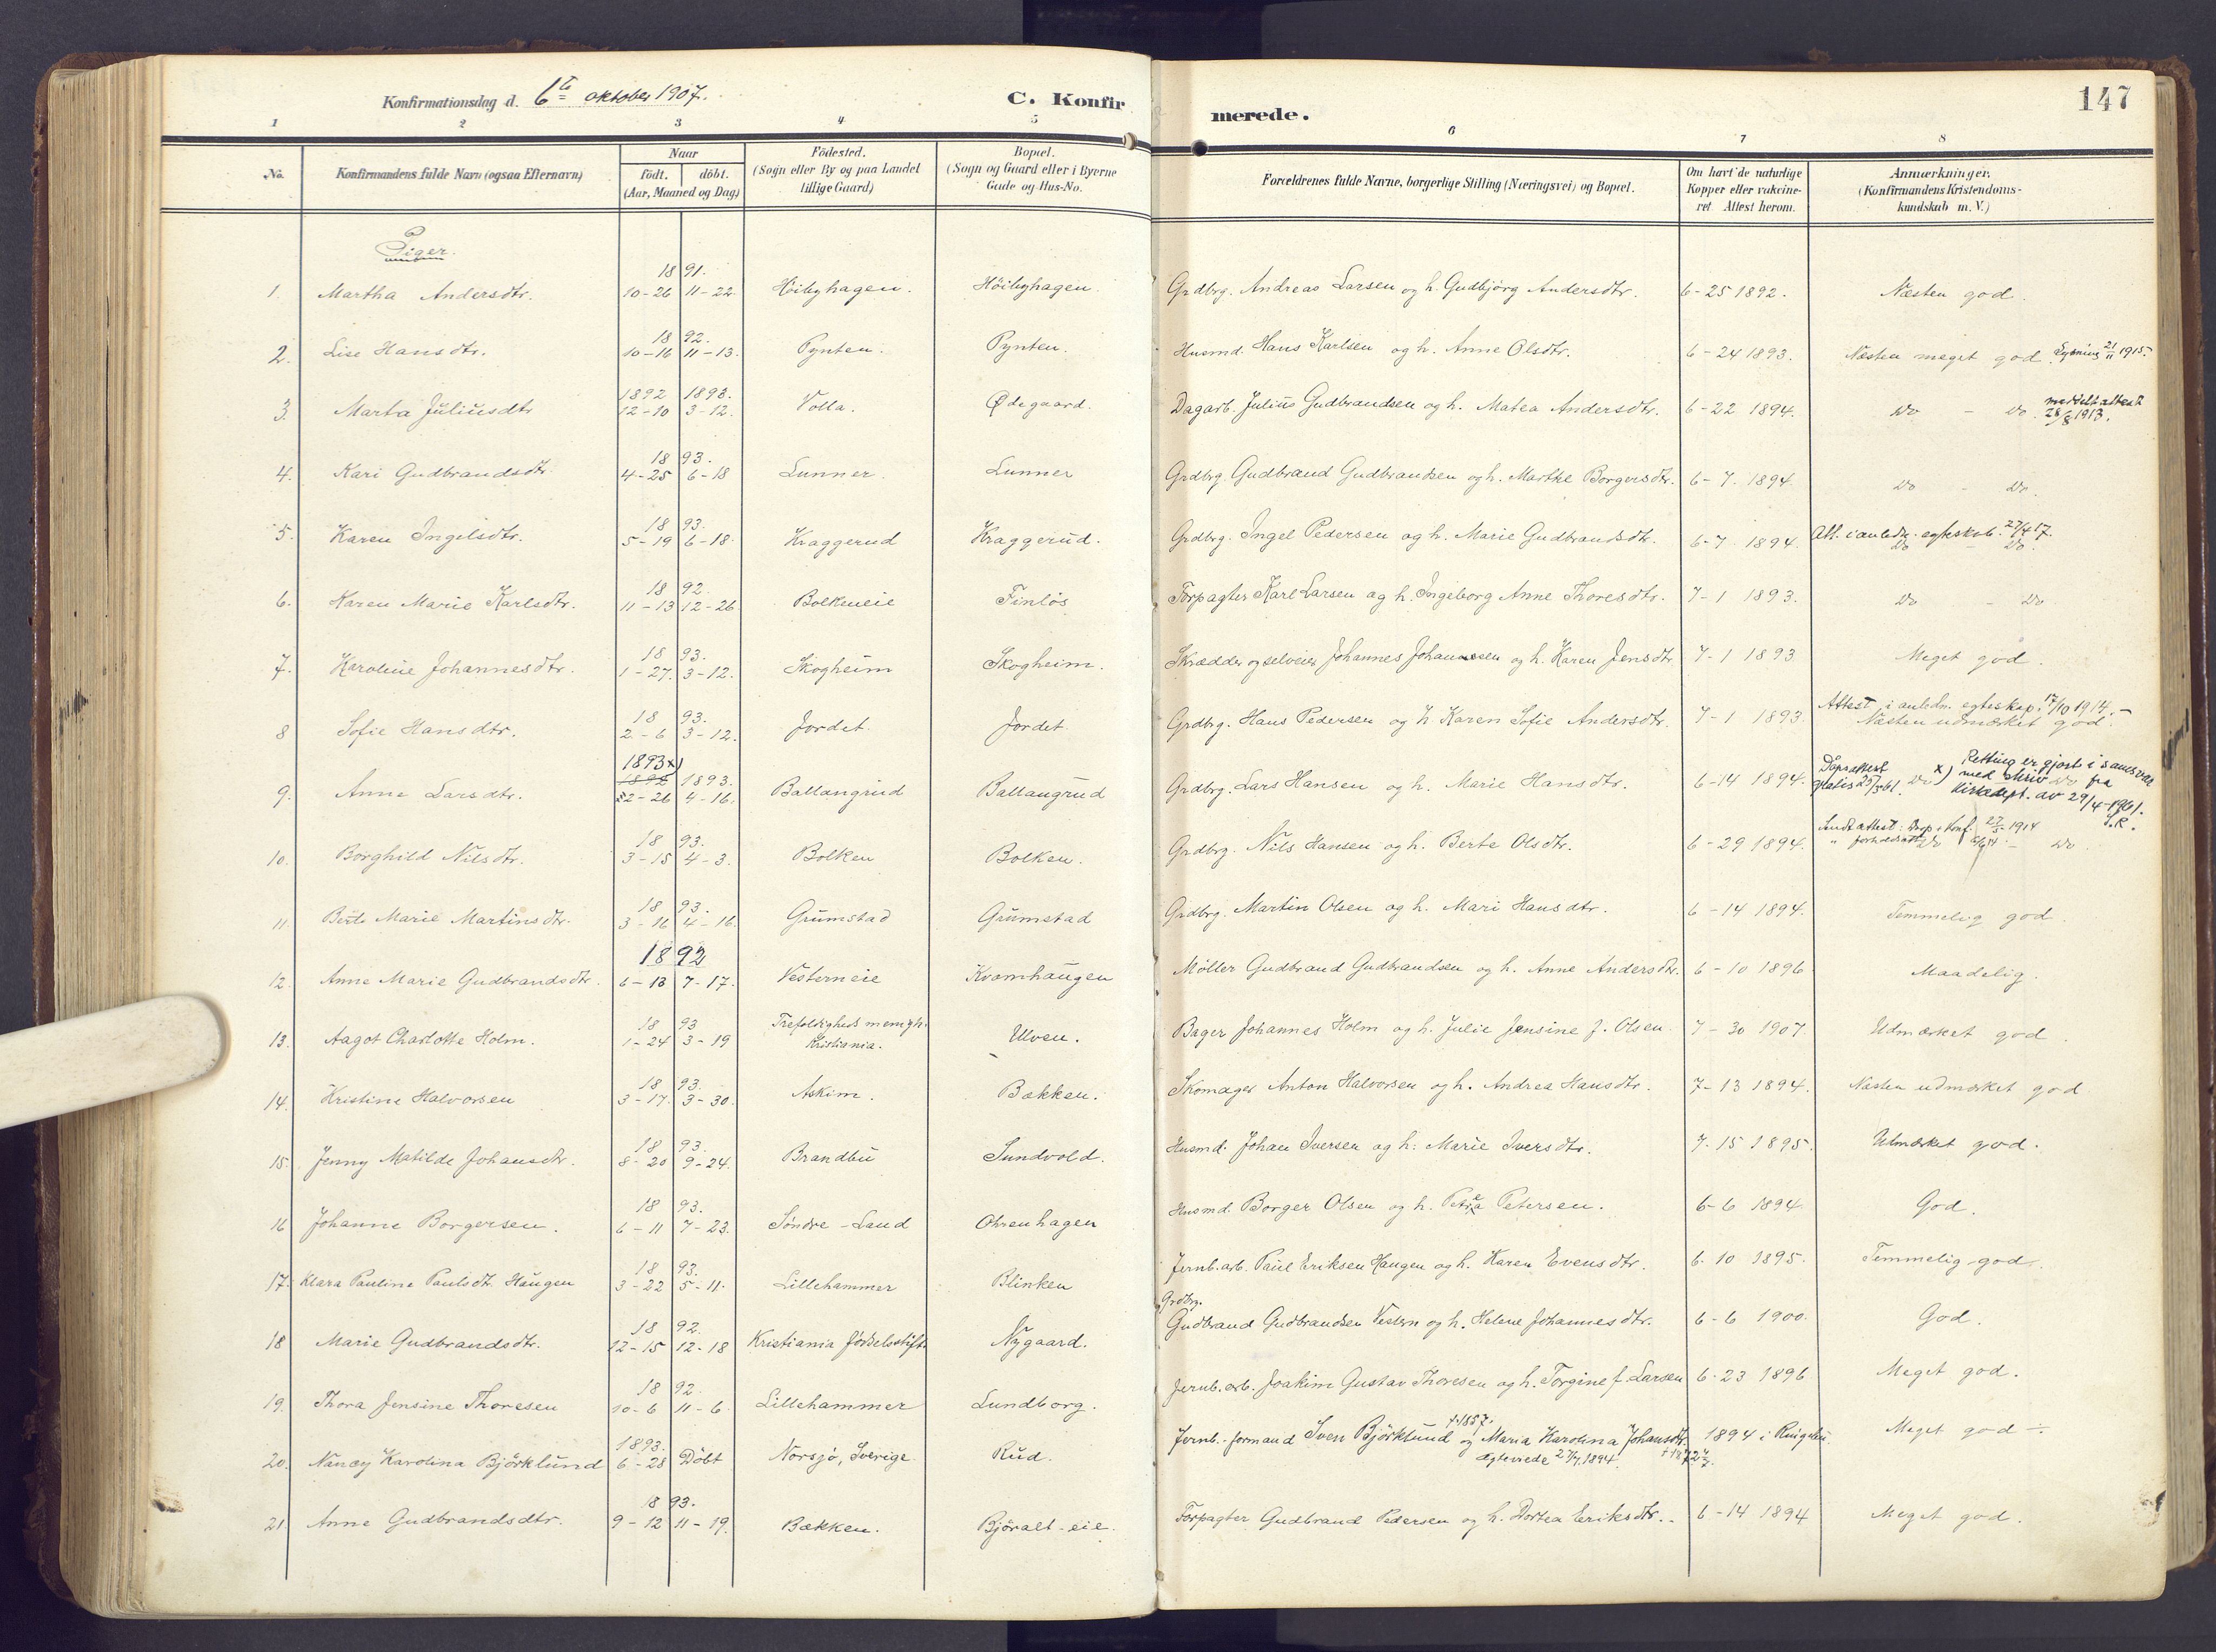 Konfirmationsdag d. 6te oktober 1907.
C. Konfirmerede.
147
1 2 3 4 5 6 7 8
No. | Konfirmandens fulde Navn (ogsaa Efternavn) | Naar födt. döbt. (Aar, Maaned og Dag) | Födested. (Sogn eller By og paa Landet tillige Gaard) | Bopæl. (Sogn og Gaard eller i Byerne Gade og Hus-No. | Forældrenes fulde Navne, borgerlige Stilling (Næringsvei) og Bopæl. | Om havt de naturlige Kopper eller vakcineret Attest herom. | Anmærkninger. (Konfirmandens Kristendomskundskab m. V.)
Piger.
1. Martha Andersdtr. 1891. 10-26 11-22. Höibyhagen. Höibyhagen. Grdbrg. Andreas Larsen og h. Gudbjörg Andersdtr. 6-25 1892. Næsten god.
2. Lise Hansdtr. 1892. 10-16 11-13. Pynten. Pynten. Husmd. Hans Karlsen og h. Anne Olsdtr. 6-24 1893. Næsten meget god. Lysning 21/11 1915.
3. Marta Juliusdtr 1892 12-10 1893. 3-12. Volla. Ødegaard. Dagarb. Julius Gudbrandsen og h. Matea Andersdtr. 6-22 1894. Do - Do. meddelt attest 28/8 1913.
4. Kari Gudbrandsdtr. 1893. 4-25 6-18 Lunner. Lunner Grdbrg. Gudbrand Gudbrandsen og h. Marthe Borgersdtr. 6-7. 1894. Do - Do.
5. Karen Ingelsdtr. 1893. 5-19 6-18. Kraggerud Kraggerud. Grdbrg. Ingel Pedersen og h. Marie Gudbrandsdtr. 6-7 1894. Att. i anledn. egteskab. 27/4 17. Do - Do.
6. Karen Marie Karlsdtr. 1892. 11-13 12-26 Bolkeneie Finlös. Forpagter Karl Larsen og h. Ingeborg Anne Thoresdtr. 7-1 1893. Do - Do
7. Karoline Johannesdtr. 1893. 1-27. 3-12. Skogheim Skogheim. Skrædder og selveier Johannes Johannesen og h. Karen Jensdtr 7-1 1893 Meget god.
8 Sofie Hansdtr. 1893. 2-6 3-12. Jordet. Jordet. Grdbrg. Hans Pedersen og h. Karen Sofie Andersdtr. 7-1 1893. Attest i anledn. egteskap. 17/10 1914.- Næsten udmærket god.
9. Anne Larsdtr. 1893x) 1892 2-26 1893. 4-16. Ballangrud Ballangrud Grdbrg. Lars Hansen og h. Marie Hansdtr. 6-14 1894. Dåpsattest gratis 25/5 61. Do x) Retting er gjort i samsvar med skriv Do fra Kirkedept. av 29/4-1961. S.R.
10. Borghild Nilsdtr. 1893. 3-15 4-3. Bolken Bolken. Grdbrg. Nils Hansen og h. Berte Olsdtr. 6-29 1894. Sendt attest: Daap + Konf. 27/5 1914 - Do
11. Berte Marie Martinsdtr. 1893. 3-16 4-16. Grumstad Grumstad Grdbrg. Martin Olsen og h. Mari Hansdtr. 6-14 1894. Temmelig god.
12. Anne Marie Gudbrandsdtr. 1892 6-13 7-17. Vesterneie Kvornhaugen Möller Gudbrand Gudbrandsen og h. Anne Andersdtr. 6-10 1896 Maadelig.
13. Aagot Charlotte Holm. 1893 1-24 3-19 Trefoldigheds menigh. Kristiania. Ulven. Bager Johannes Holm og h. Julie Jensine f. Olsen. 7-30 1907. Udmærket god.
14. Kristine Halvorsen 1893. 3-17. 3-30. Askim. Bækken. Skomager Anton Halvorsen og h. Andrea Hansdtr. 7-13 1894. Næsten udmærket god
15. Jenny Matilde Johansdtr. 1893. 8-20 9-24. Brandbu Sundvold. Husmd. Johan Iversen og h. Marie Iversdtr. 7-15 1895. Udmærket god.
16 Johanne Borgersen. 1893. 6-11 7-23. Søndre-Land Ohrenhagen Husmd. Borger Olsen og h. Petra Petersen. 6-6 1894. God.
17. Klara Pauline Paulsdtr. Haugen 1893. 3-22 5-11. Lillehammer Blinken Jernb.arb. Paul Eriksen Haugen og h. Karen Evensdtr. 6-10 1895. Temmelig god.
18 Marie Gudbrandsdtr. 1892. 12-15 12-18 Kristiania fødselsstift. Nygaard. Grdbrg. Gudbrand Gudbrandsen Vestern og h. Helene Johannesdtr. 6-6 1900. God.
19. Thora Jensine Thoresen 1892. 10-6 11-6. Lillehammer Lundborg. Jernb. arb. Joakim Gustav Thoresen og h. Torgine f. Larsen 6-23 1896 Meget god.
20. Nancy Karolina Björklund 1893. 6-28 Döbt Norsjö, Sverige. Rud. Jernb.-formand Sven Björklund f. 1857. og Maria Karolina Johansdtr. Ægteviede 1894. 1894 i Ringebu. Meget god
21. Anne Gudbrandsdtr. 1893. 9-12 11-19. Bækken. Björalt-eie. Forpagter Gudbrand Pedersen og h. Dortea Eriksdtr. 6-14 1894 Meget god.